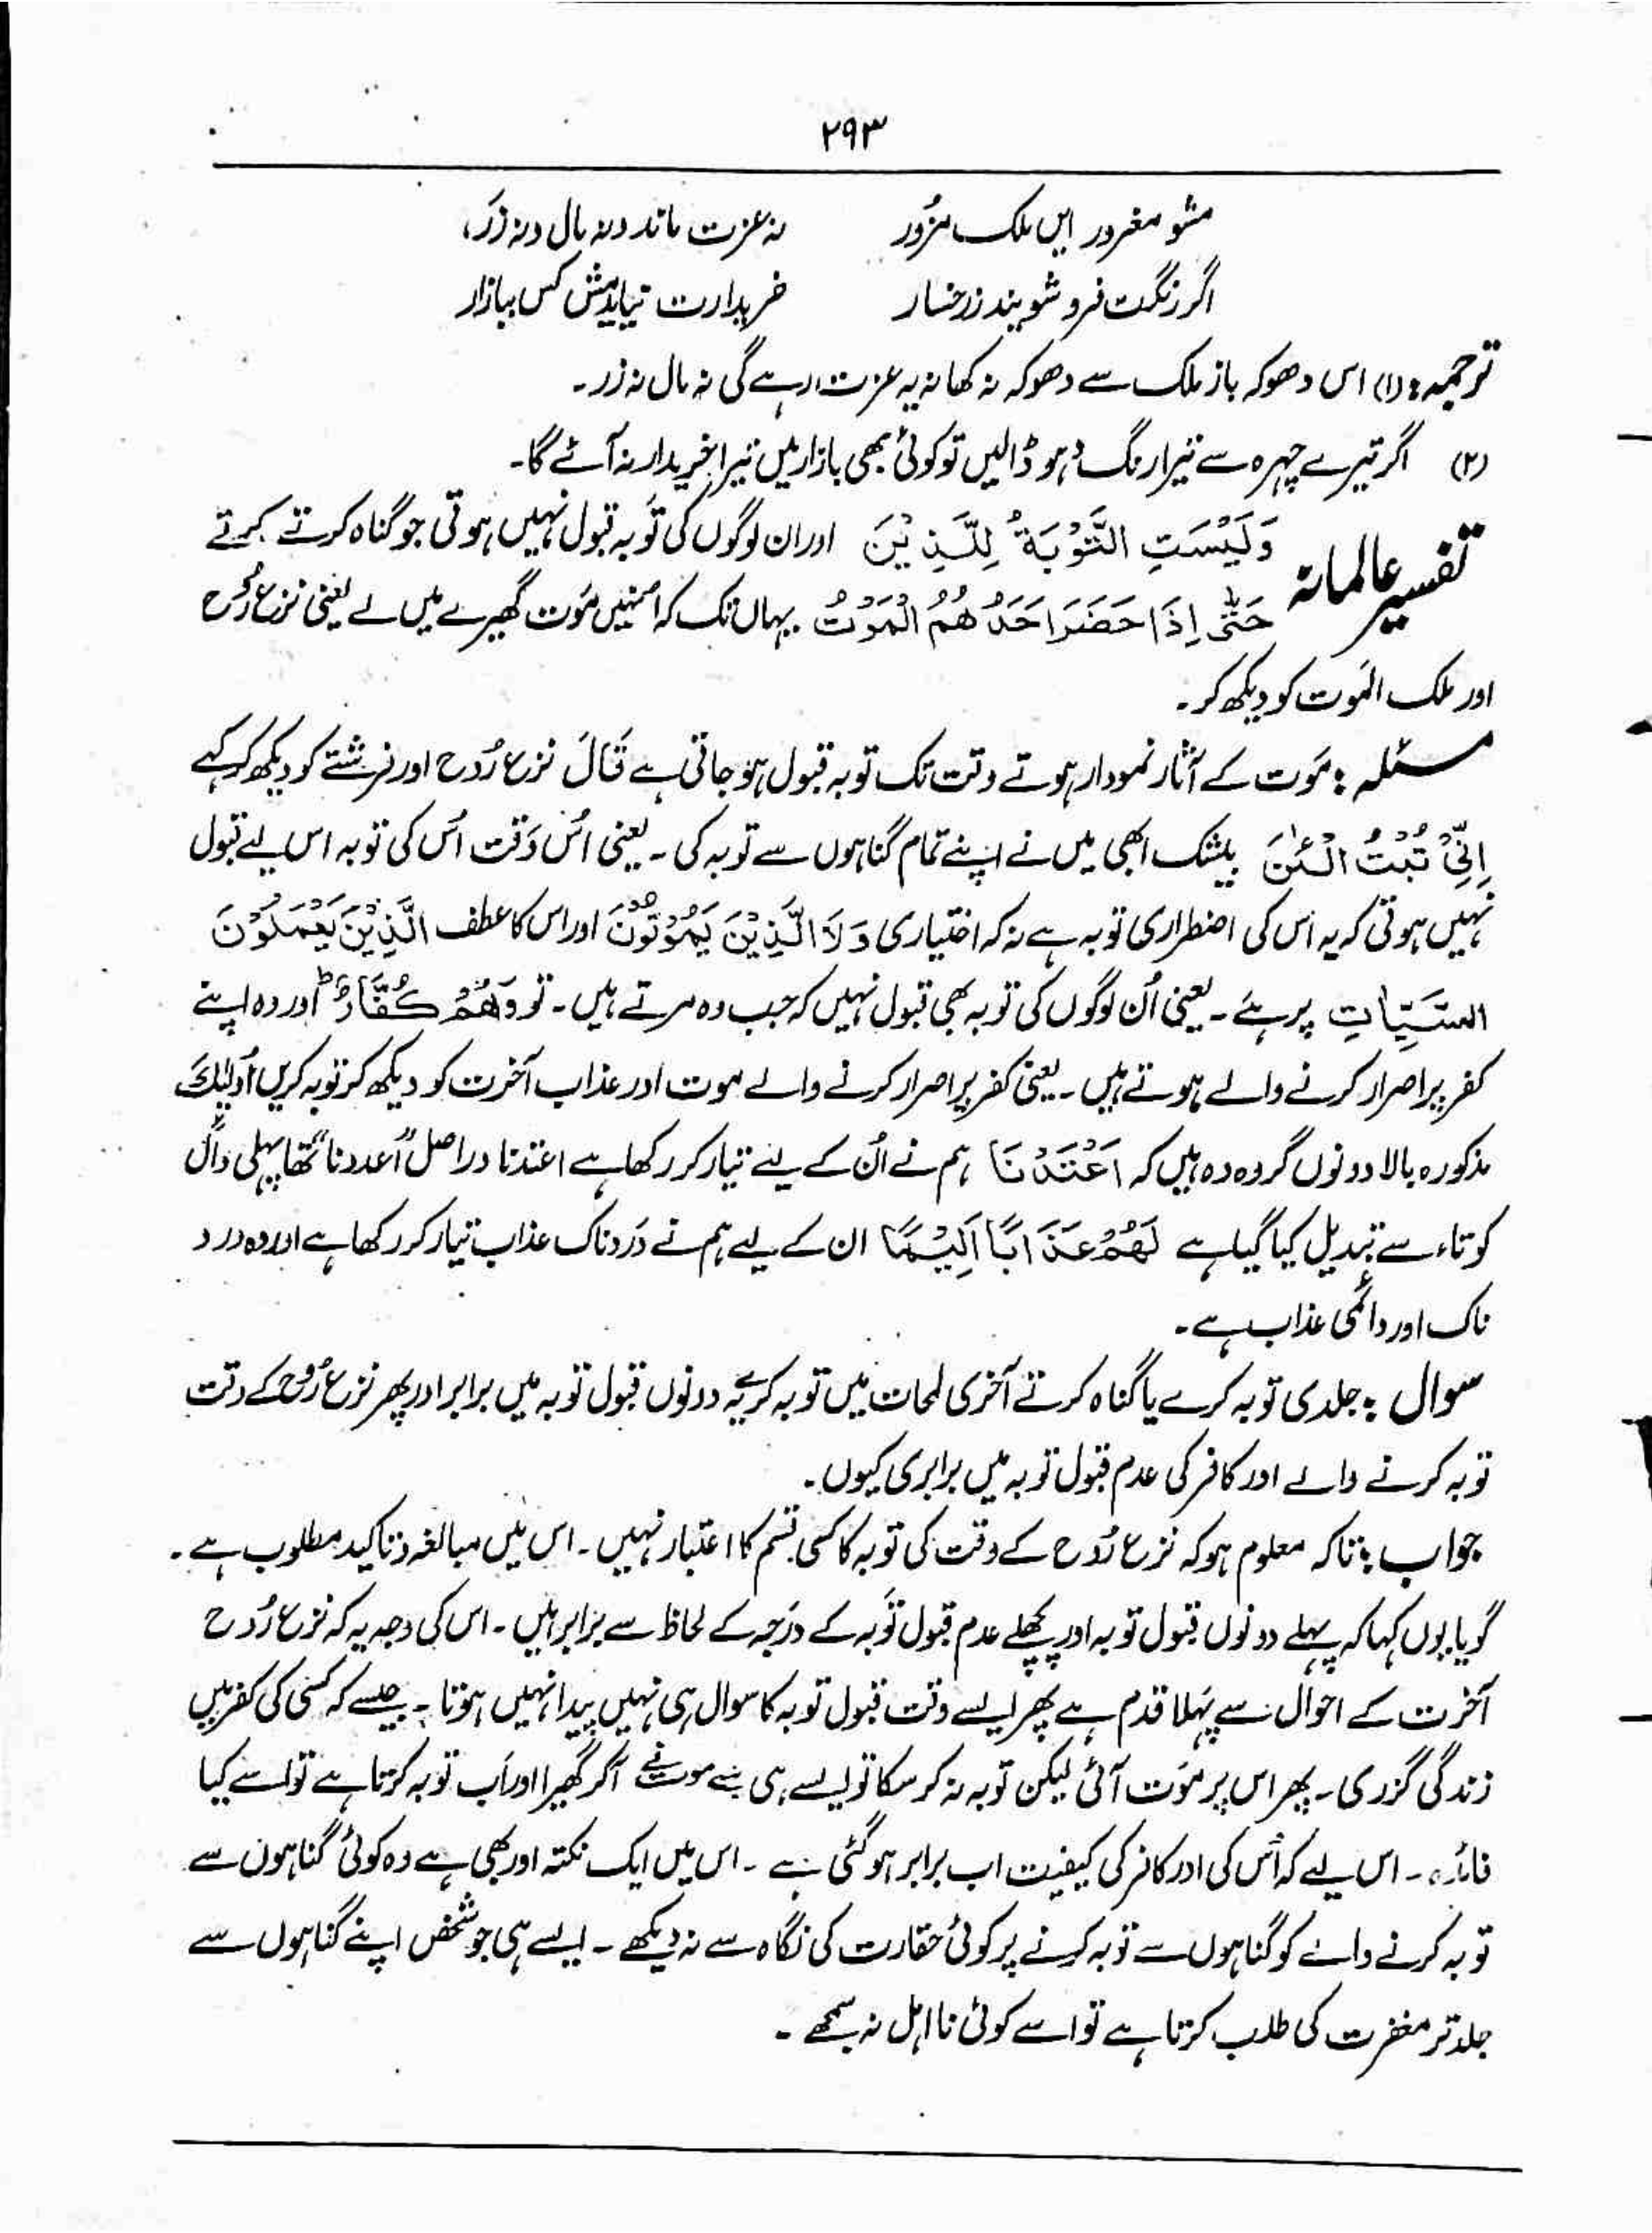 ۲۹۳
مشو مغرور ایں ملک مزُور نہ عزت ماند ونہ مال ونہ زر
اگر رنگت فرو شویند زرخسار خریدارت نیاید پیش کس ببازار
ترجمہ: (۱) اس دھوکہ باز ملک سے دھوکہ نہ کھا نہ یہ عزت رہے گی نہ مال نہ زر۔
(۲) اگر تیرے چہرہ سے تیرا رنگ دھو ڈالیں تو کوئی بھی بازار میں تیرا خریدار نہ آئے گا۔
تفسیر عالمانہ وَلَيْسَتِ التَّوْبَةُ لِلَّذِيْنَ اور ان لوگوں کی توبہ قبول نہیں ہوتی جو گناہ کرتے کرتے
حَتّٰٓى اِذَا حَضَرَ اَحَدَهُمُ الْمَوْتُ یہاں تک کہ انہیں مَوت گھیرے میں لے یعنی نزع رُوح
اور ملک الموت کو دیکھ کر۔
مسئلہ: مَوت کے آثار نمودار ہوتے وقت تک توبہ قبول ہو جاتی ہے قَالَ نزع رُوح اور فرشتے کو دیکھ کر کہے
اِنِّىْ تُبْتُ الْـٰٔنَ بیشک ابھی میں نے اپنے تمام گناہوں سے توبہ کی۔ یعنی اُس وَقت اُس کی توبہ اس لیے قبول
نہیں ہوتی کہ یہ اس کی اضطراری توبہ ہے نہ کہ اختیاری وَلَا الَّذِيْنَ يَمُوْتُوْنَ اور اس کا عطف الَّذِيْنَ يَعْمَلُوْنَ
السَّيِّاٰتِ پر ہے۔ یعنی اُن لوگوں کی توبہ بھی قبول نہیں کہ جب وہ مرتے ہیں۔ تو وَهُمْ كُفَّارٌؕ اور وہ اپنے
کفر پر اصرار کرنے والے ہوتے ہیں۔ یعنی کفر پر اصرار کرنے والے موت اور عذاب آخرت کو دیکھ کر توبہ کریں اُولٰٓئِكَ
مذکورہ بالا دونوں گروہ وہ ہیں کہ اَعْتَدْنَا ہم نے اُن کے لیے تیار کر رکھا ہے اعتدنا دراصل "اَعددنا" تھا پہلی دال
کو تاء سے تبدیل کیا گیا ہے لَهُمْ عَذَابًا اَلِيْمًا ان کے لیے ہم نے دَردناک عذاب تیار کر رکھا ہے اور وہ درد
ناک اور دائمی عذاب ہے۔
سوال: جلدی توبہ کرے یا گناہ کرتے آخری لمحات میں توبہ کرے یہ دونوں قبول توبہ میں برابر اور پھر نزع رُوح کے وقت
توبہ کرنے والے اور کافر کی عدم قبول توبہ میں برابری کیوں۔
جواب: تاکہ معلوم ہو کہ نزع رُوح کے وقت کی توبہ کا کسی قسم کا اعتبار نہیں۔ اس میں مبالغہ و تاکید مطلوب ہے۔
گویا یوں کہا کہ پہلے دونوں قبول توبہ اور پچھلے عدم قبول تَوبہ کے دَرجہ کے لحاظ سے برابر ہیں۔ اس کی وجہ یہ کہ نزع رُوح
آخرت کے احوال سے پہلا قدم ہے پھر ایسے وقت قبول توبہ کا سوال ہی نہیں پیدا نہیں ہوتا۔ جیسے کہ کسی کی کفر میں
زندگی گزری۔ پھر اس پر مَوت آئی لیکن توبہ نہ کر سکا تو ایسے ہی جسے موت نے آکر گھیرا اور اَب توبہ کرتا ہے تو اسے کیا
فائدہ۔ اس لیے کہ اُس کی اور کافر کی کیفیت اب برابر ہو گئی ہے۔ اس میں ایک نکتہ اور بھی ہے وہ کوئی گناہوں سے
توبہ کرنے والے کو گناہوں سے توبہ کرنے پر کوئی حقارت کی نگاہ سے نہ دیکھے۔ ایسے ہی جو شخص اپنے گناہوں سے
جلد تر مغفرت کی طلب کرتا ہے تو اسے کوئی نااہل نہ سمجھے۔